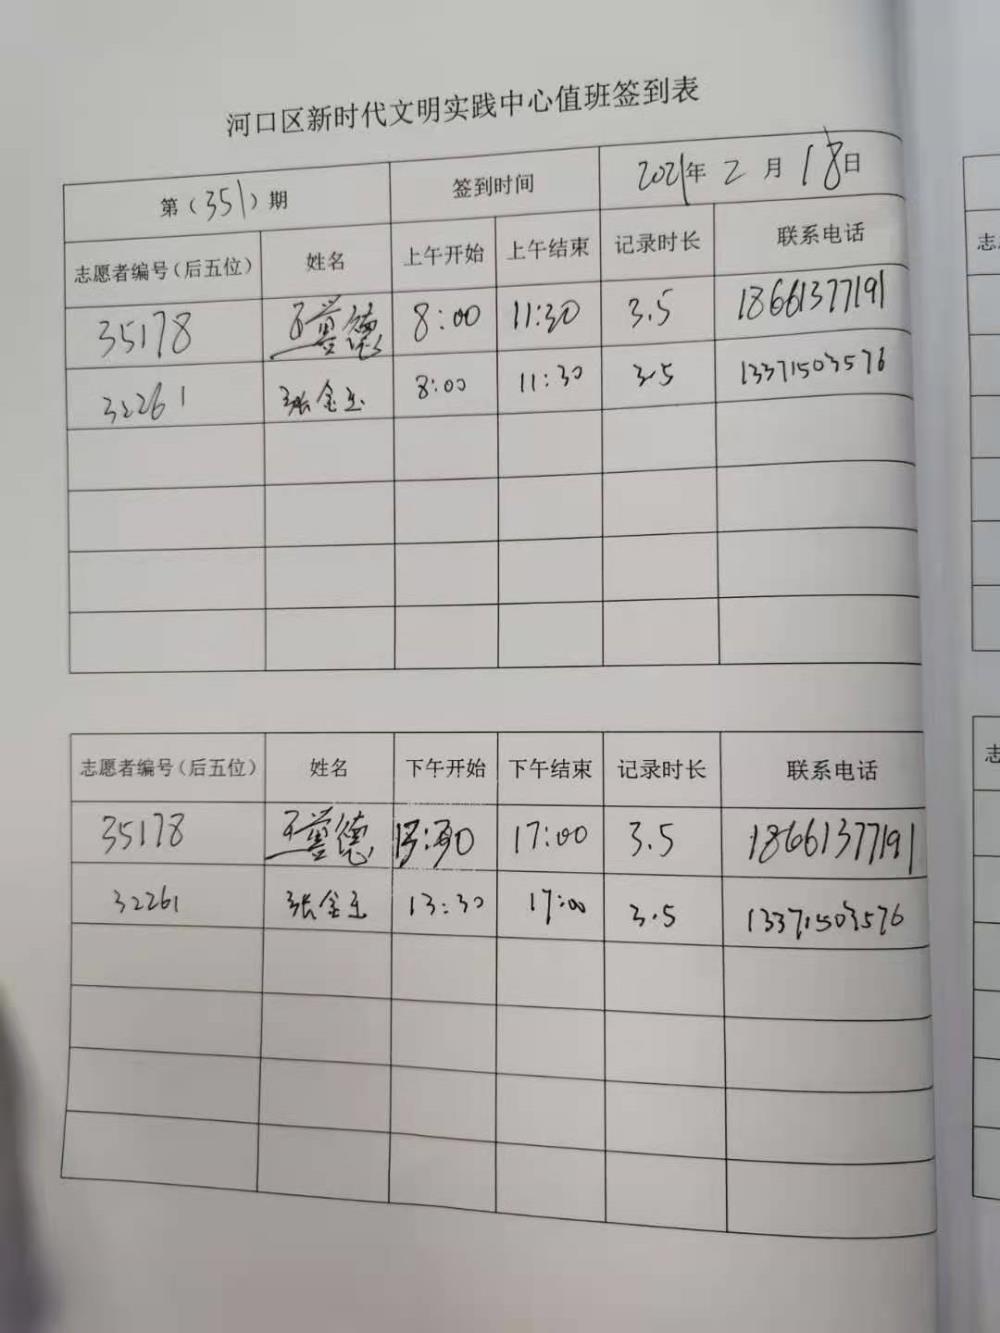 河口区新时代文明实践中心值班签到表
第（351）期 签到时间 2021年 2 月 18日
志愿者编号（后五位） 姓名 上午开始 上午结束 记录时长 联系电话
35178 8:00 11:30 3.5 18661377191
32261 张金玉 8:00 11:30 3.5 13371503576
志愿者编号（后五位） 姓名 下午开始 下午结束 记录时长 联系电话
35178 13:30 17:00 3.5 18661377191
32261 张金玉 13:30 17:00 3.5 13371503576